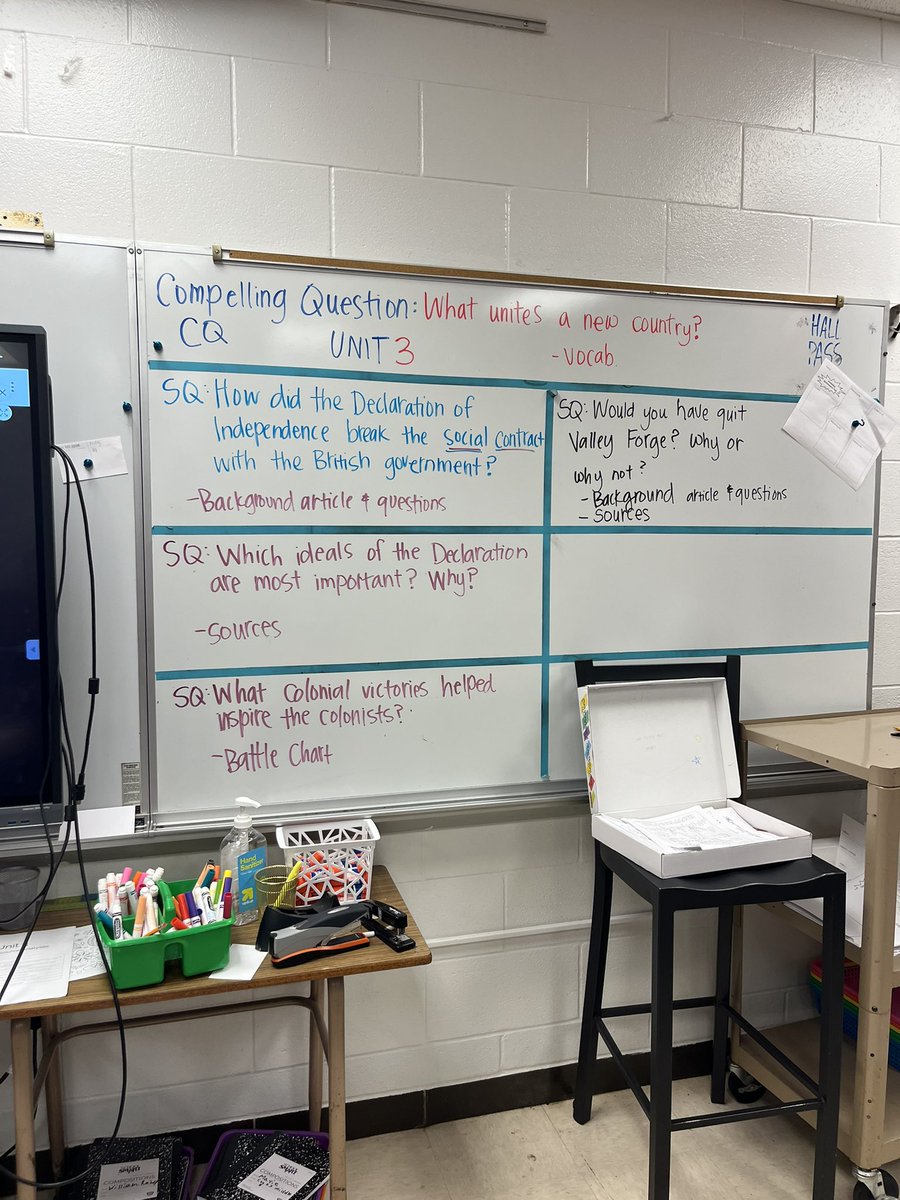 Compelling Question: What unites a new country?
CQ UNIT 3 - Vocab.
HALL
PASS
SQ: How did the Declaration of
Independence break the social contract
with the British government?
- Background article & questions
SQ: Would you have quit
Valley Forge? Why or
why not?
- Background article & questions
- Sources
SQ: Which ideals of the Declaration
are most important? Why?
- Sources
SQ: What colonial victories helped
inspire the colonists?
- Battle Chart
Hand
Sanitizer
COMPOSITIONS
William
COMPOSITIONS